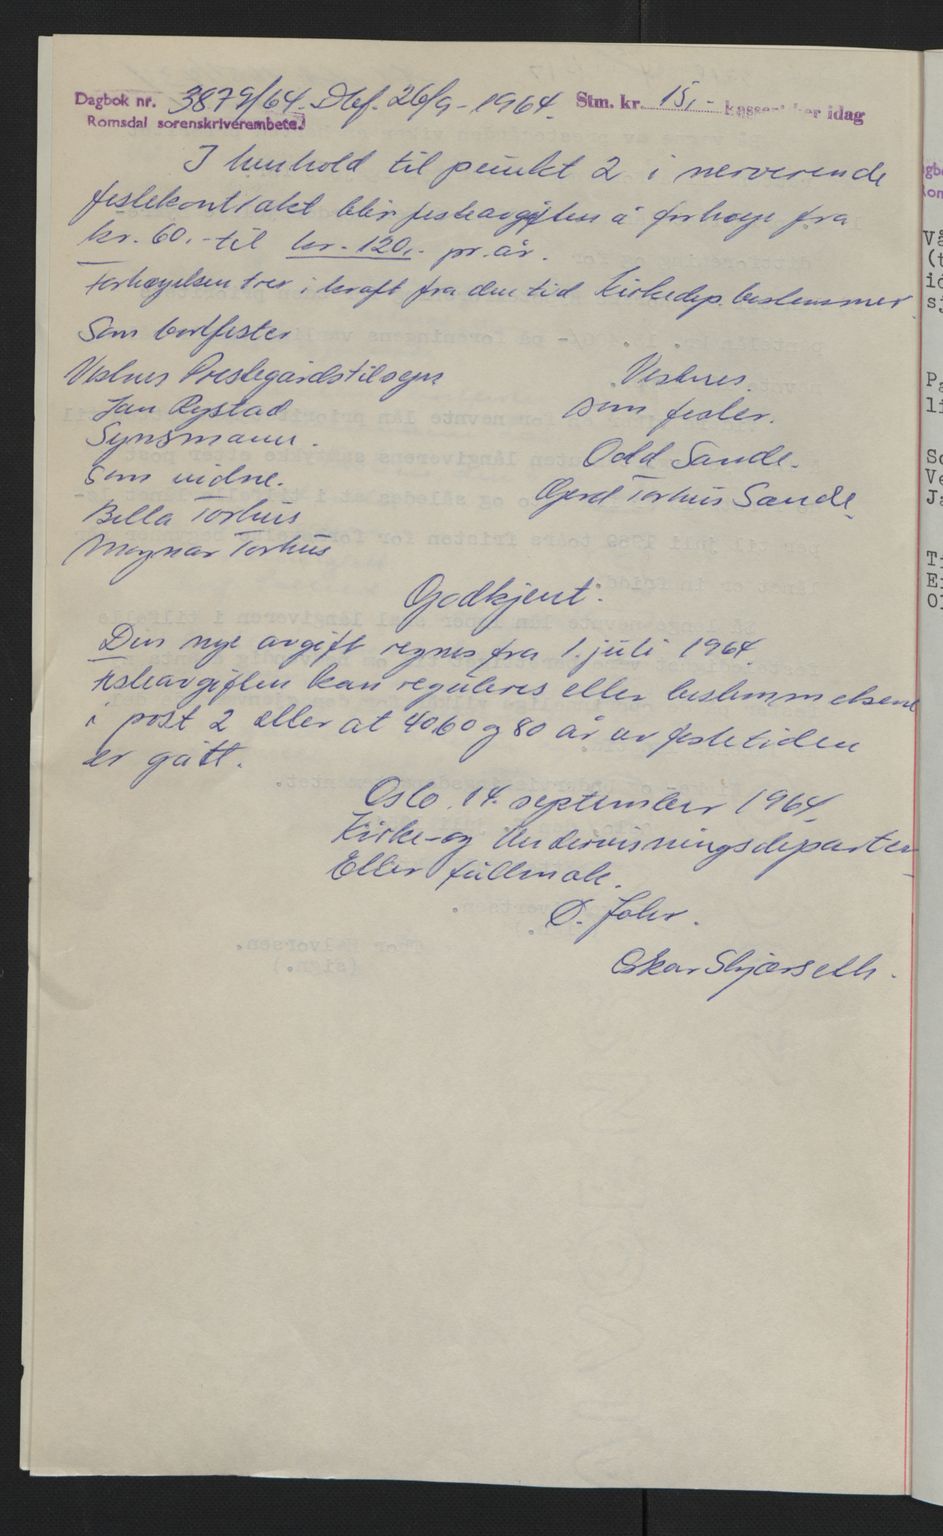 Dagbok nr. 3879/64. Dbf. 26/9-1964. Stm. kr. 15,- kasseres her idag
Romsdal sorenskriverembete.
I henhold til punkt 2 i nerverende
festekontrakt blir festeavgiften å forhøye fra
kr. 60.- til kr. 120,- pr. år.
Forhøyelsen trer i kraft fra den tid Kirkedep. bestemmer.
Som bortfester
Vestnes Prestegårdstilsyn
Jan Rystad
Synsmann.
Som vidne.
Bella Torhus
Magnar Torhus
Vestnes.
som fester.
Odd Sande.
Gerd Torhus Sande.
Godkjent.
Den nye avgift regnes fra 1. juli 1964.
Festeavgiften kan reguleres etter bestemmelsene
i post 2 etter at 40 60 og 80 år av festetiden
er gått.
Oslo, 14. september 1964.
Kirke- og Undervisningsdeparte
Etter fullmakt.
O.
Oskar Skjærseth.